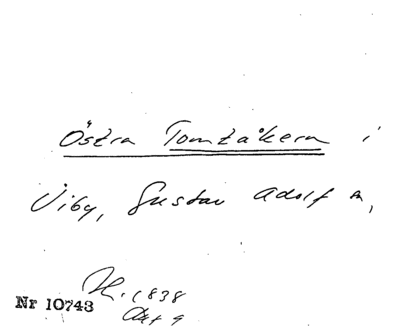 Östra Tomtåkern i
Viby, Gustav Adolf sn,
H. 1838
Nr 10743
Akt 9